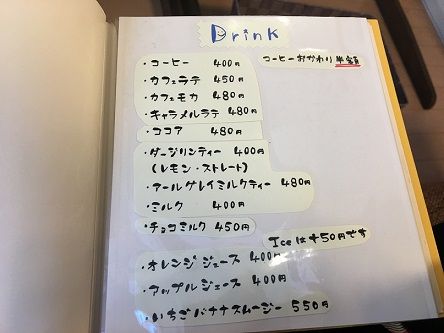 Drink
・コーヒー 400円
コーヒーおかわり 半額
・カフェラテ 450円
・カフェモカ 480円
・キャラメルラテ 480円
・ココア 480円
・ダージリンティー 400円
(レモン・ストレート)
・アールグレイミルクティー 480円
・ミルク 400円
・チョコミルク 450円
Iceは+50円です
・オレンジジュース 400円
・アップルジュース 400円
・いちごバナナスムージー 550円